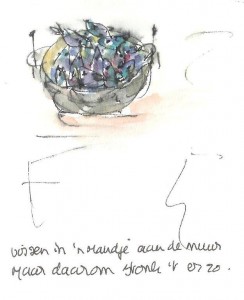 vissen in 'n mandje aan de muur
maar daarom stonk 't er zo.